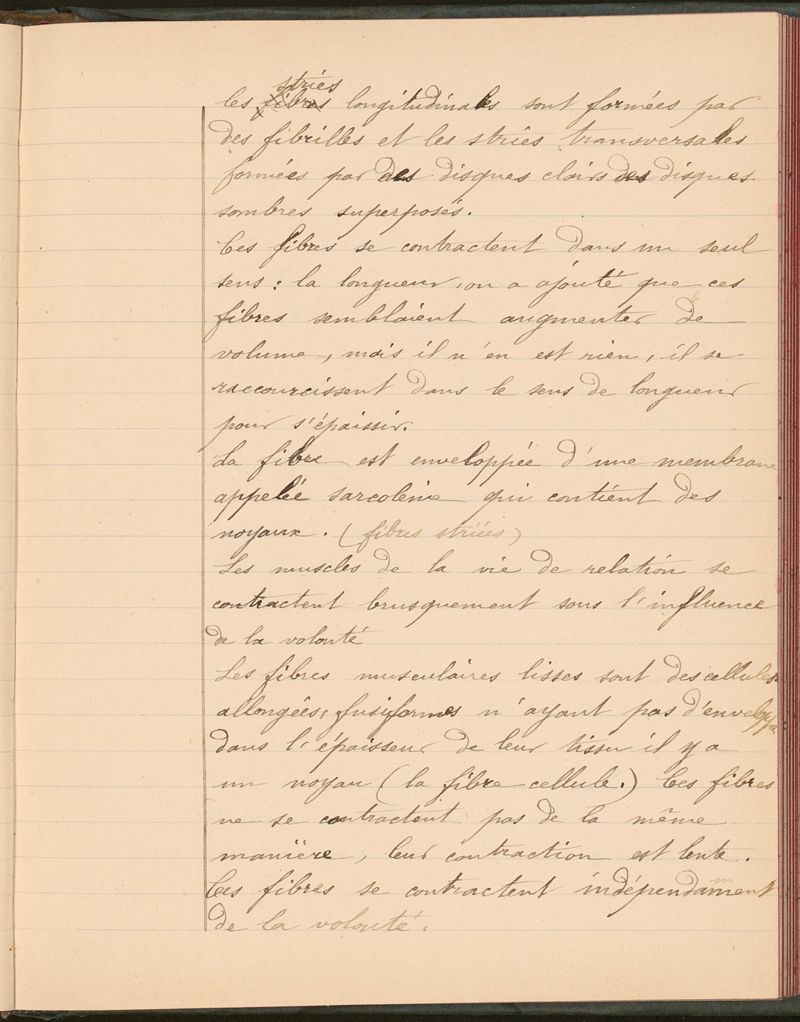 les fibres stries longitudinales sont formées par
des fibrilles et les stries transversales
formées par des disques clairs des disques
sombres superposés.
Ces fibres se contractent dans un seul
sens : la longueur, on a ajouté que ces
fibres semblaient augmenter de
volume, mais il n'en est rien, il se
raccourcissent dans le sens de longueur
pour s'épaissir.
La fibre est enveloppée d'une membrane
appelée sarcolème qui contient des
noyaux. (fibres striées)
Les muscles de la vie de relation se
contractent brusquement sous l'influence
de la volonté
Les fibres musculaires lisses sont des cellules
allongées, fusiformes n'ayant pas d'enveloppe
dans l'épaisseur de leur tissu il y a
un noyau (la fibre cellule.) Ces fibres
ne se contractent pas de la même
manière, leur contraction est lente.
Ces fibres se contractent indépendamment
de la volonté.